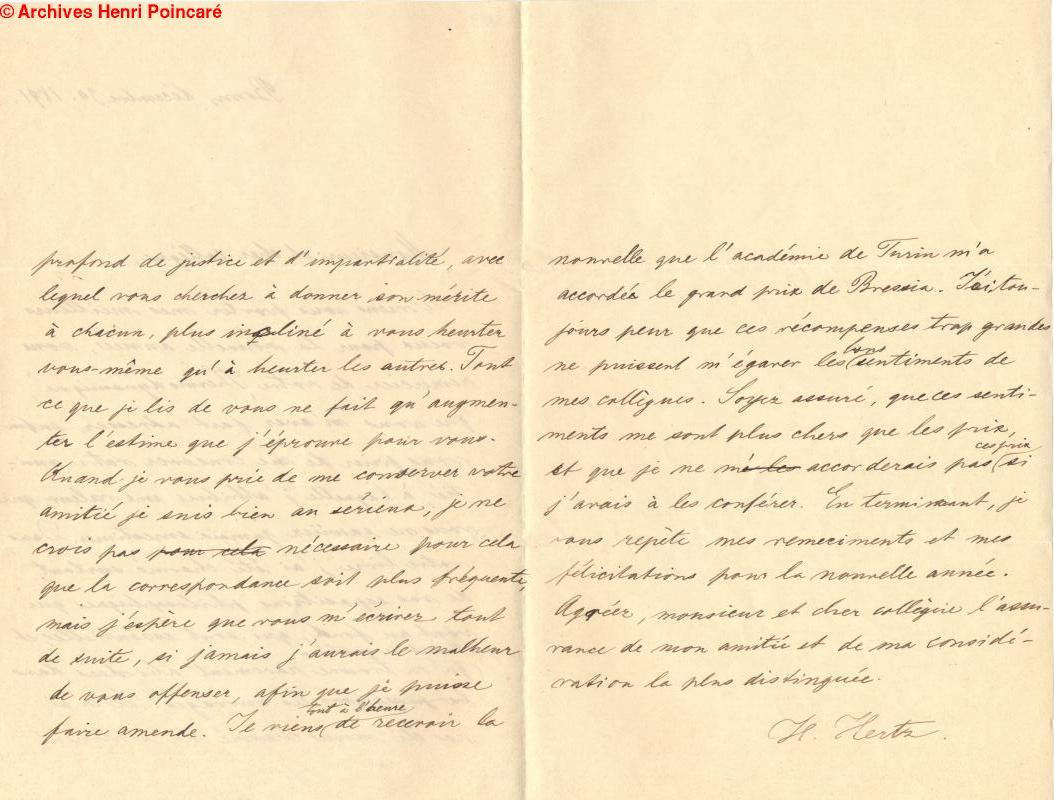 © Archives Henri Poincaré
profond de justice et d'impartialité, avec
lequel vous cherchez à donner son mérite
à chacun, plus incliné à vous heurter
vous-même qu'à heurter les autres. Tout
ce que je lis de vous ne fait qu'augmen-
ter l'estime que j'éprouve pour vous.
Quand je vous prie de me conserver votre
amitié je suis bien au sérieux, je ne
crois pas pour cela nécessaire pour cela
que la correspondance soit plus fréquente,
mais j'espère que vous m'écrivez tout
de suite, si jamais j'aurais le malheur
de vous offenser, afin que je puisse
faire amende. Je viens tout à l'heure de recevoir la
nouvelle que l'académie de Turin m'a
accordée le grand prix de Bressa. J'ai tou-
jours peur que ces récompenses trop grandes
ne puissent m'égarer les bons sentiments de
mes collègues. Soyez assuré, que ces senti-
ments me sont plus chers que les prix,
et que je ne m'e les accorderais pas ces prix si
j'avais à les conférer. En terminant, je
vous répète mes remeciments et mes
félicitations pour la nouvelle année.
Agréer, monsieur et cher collègue l'assu-
rance de mon amitié et de ma considé-
ration la plus distinguée.
H. Hertz.